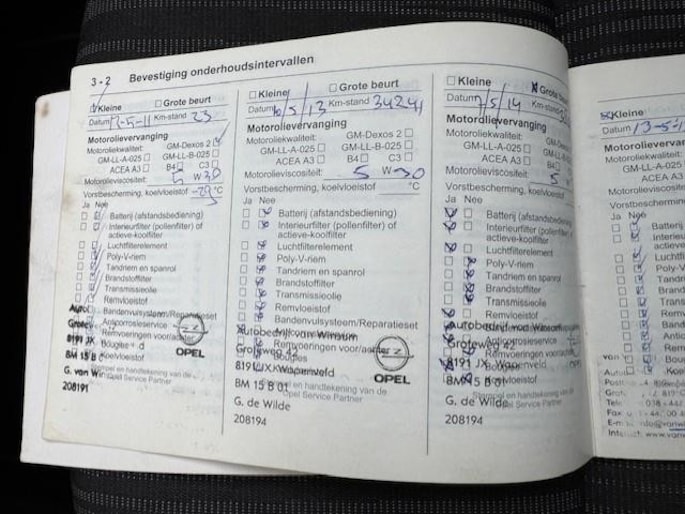 3 - 2 Bevestiging onderhoudsintervallen
Kleine Grote beurt
Datum -5-11 Km-stand 23
Motorolievervanging
Motoroliekwaliteit: GM-Dexos 2
GM-LL-A-025 GM-LL-B-025
ACEA A3 B4 C3
Motorolieviscositeit: 5 W 30
Vorstbescherming, koelvloeistof -29 °C
Ja Nee
Batterij (afstandsbediening)
Interieurfilter (pollenfilter) of
actieve-koolfilter
Luchtfilterelement
Poly-V-riem
Tandriem en spanrol
Brandstoffilter
Transmissieolie
Remvloeistof
Bandenvulsysteem/Reparatieset
Anticorrosieservice
8191 JX
BM 15 B
Koelvloeistof
G. van
Opel Service Partner
208191
OPEL
Kleine Grote beurt
Datum 10/5/13 Km-stand 34241
Motorolievervanging
Motoroliekwaliteit: GM-Dexos 2
GM-LL-A-025 GM-LL-B-025
ACEA A3 B4 C3
Motorolieviscositeit: 5 W 30
Vorstbescherming, koelvloeistof °C
Ja Nee
Batterij (afstandsbediening)
Interieurfilter (pollenfilter) of
actieve-koolfilter
Luchtfilterelement
Poly-V-riem
Tandriem en spanrol
Brandstoffilter
Transmissieolie
Remvloeistof
Bandenvulsysteem/Reparatieset
Autobedrijf van Winsum
Groteweg 42
Remvoeringen voor/achter
Bougies
8191 JX Wapenveld
BM 15 B 01
Stempel en handtekening van de
Opel Service Partner
G. de Wilde
208194
OPEL
Kleine Grote
Datum 7/5/14 Km-stand
Motorolievervanging
Motoroliekwaliteit: GM-Dexos
GM-LL-A-025 GM-LL-B-025
ACEA A3 B4
Motorolieviscositeit: 5
Vorstbescherming, koelvloeistof
Ja Nee
Batterij (afstandsbediening)
Interieurfilter (pollenfilter) of
actieve-koolfilter
Luchtfilterelement
Poly-V-riem
Tandriem en spanrol
Brandstoffilter
Transmissieolie
Remvloeistof
Autobedrijf van Winsum
Anticorrosieservice
Groteweg 42
Remvoeringen voor/achter
8191 JX Wapenveld
BM 15 B 01
Koelvloeistof
Stempel en handtekening van de
Opel Service Partner
G. de Wilde
208194
Kleine
Datum 13-5-
Motorolieverv
Motoroliekwalite
GM-LL-A
ACE
Motorolieviscos
Vorstbescherm
Ja Nee
Batterij
Interieur
actieve
Luchtfil
Poly-V
Tandri
Brand
Trans
Remv
Band
Antic
Rem